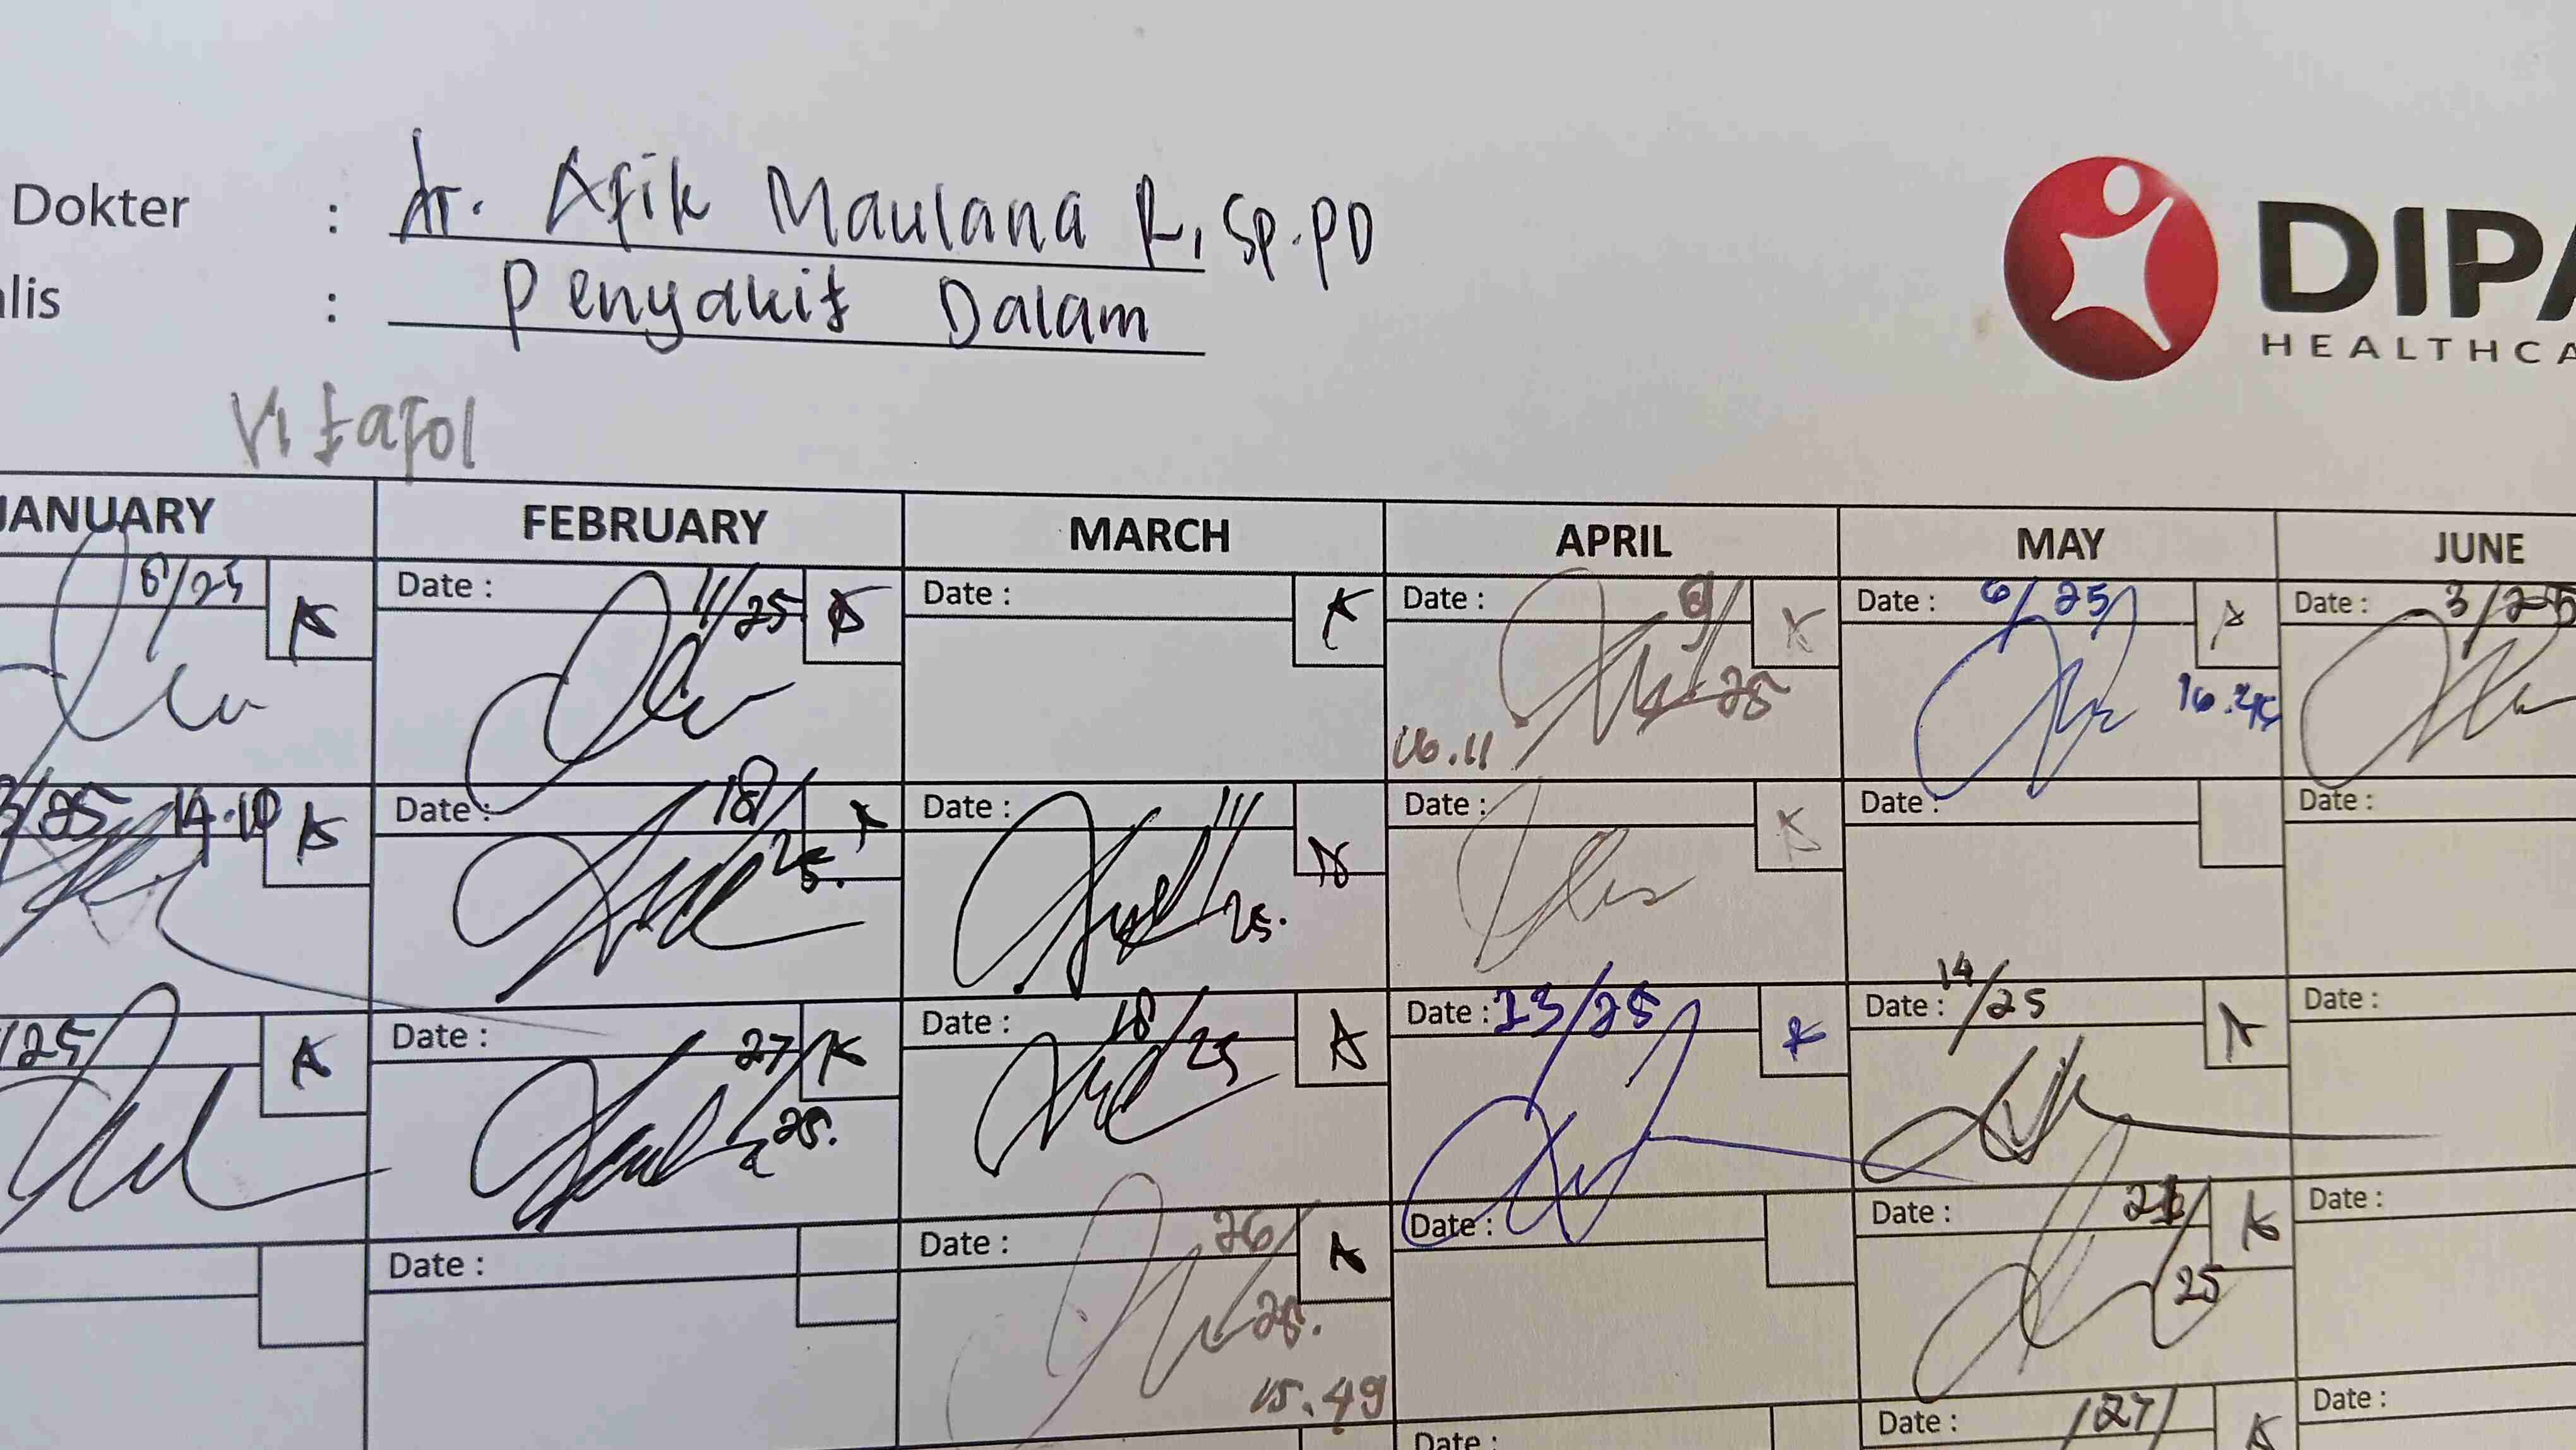 Dokter : dr. Afik Maulana R, Sp.PD
alis : Penyakit Dalam
DIPA
HEALTHCA
Vitafol
JANUARY FEBRUARY MARCH APRIL MAY JUNE
8/25 Date : 11/25 Date : Date : 8/25 Date : 6/25 Date : 3/25
16.11 16.45
/25 14.10 Date : 18/25. Date : 11/25. Date : Date : Date :
/25 Date : 27/25. Date : 18/25 Date : 23/25 Date : 14/25 Date :
Date : Date : 26/25. Date : Date : 21/25 Date :
15.49
Date : Date : 27/ Date :